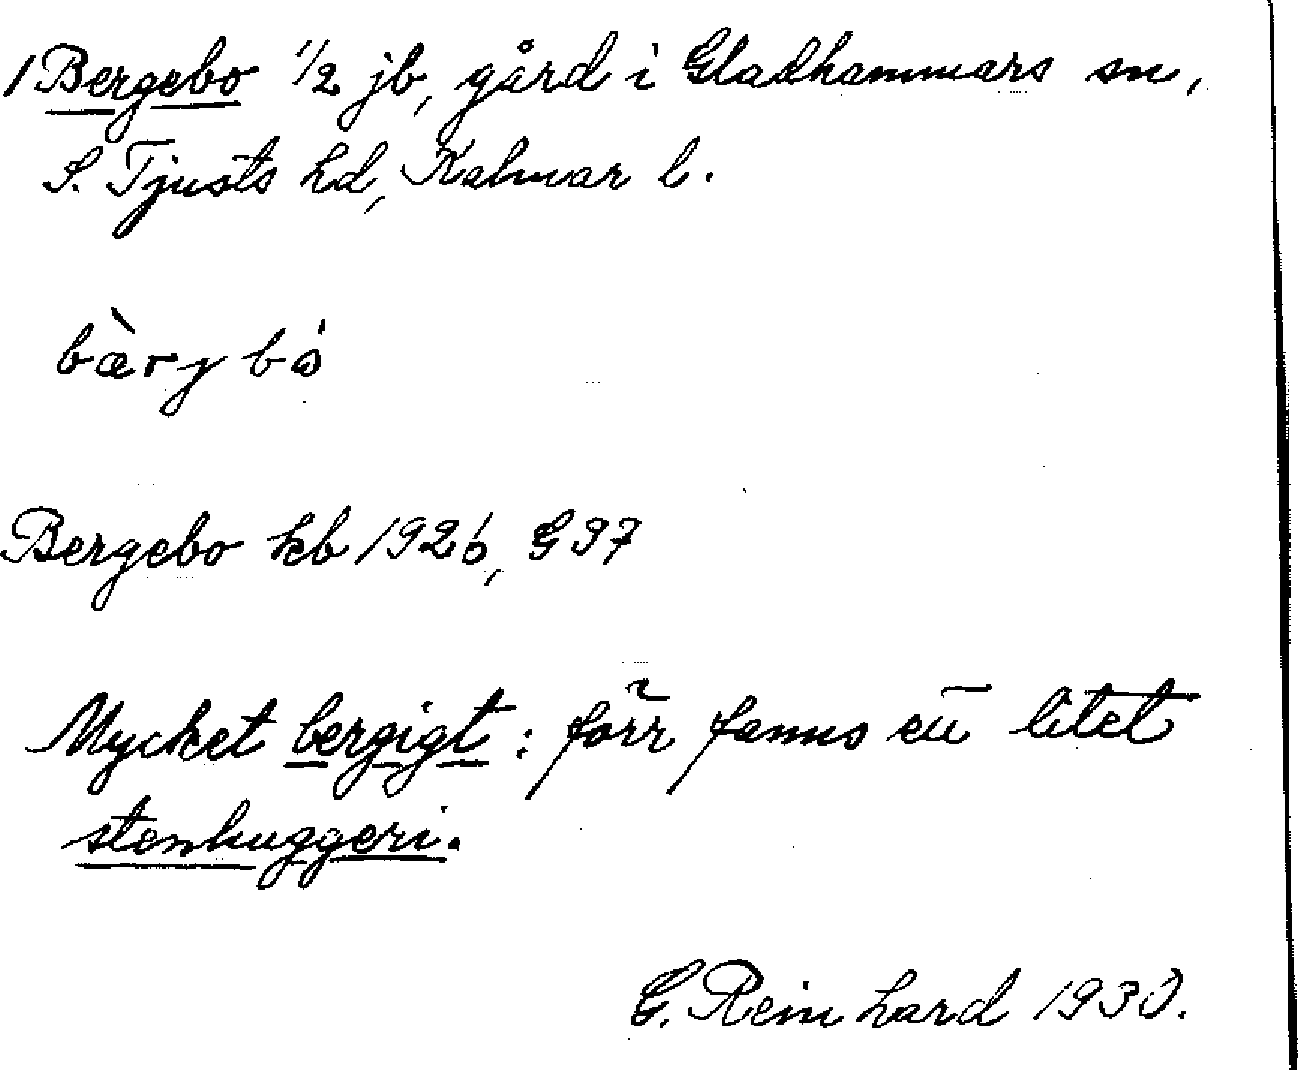 1 Bergebo 1/2 jb, gård i Gladhammars sn,
S. Tjusts hd, Kalmar l.
bàrybó
Bergebo kb 1926, G 97
Mycket bergigt: förr fanns ett litet
stenhuggeri.
G. Reinhard 1930.